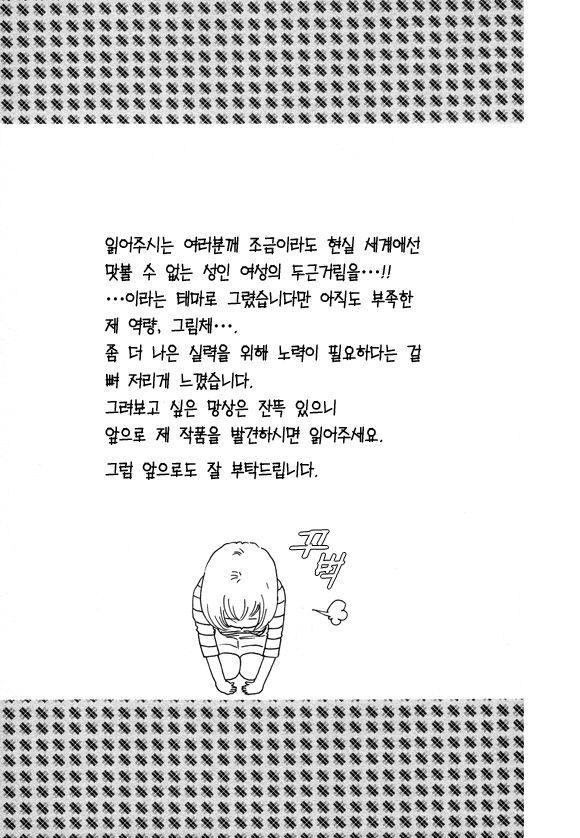 읽어주시는 여러분께 조금이라도 현실 세계에선
맛볼 수 없는 성인 여성의 두근거림을···!!
···이라는 테마로 그렸습니다만 아직도 부족한
제 역량, 그림체···.
좀 더 나은 실력을 위해 노력이 필요하다는 걸
뼈 저리게 느꼈습니다.
그려보고 싶은 망상은 잔뜩 있으니
앞으로 제 작품을 발견하시면 읽어주세요.
그럼 앞으로도 잘 부탁드립니다.
꾸벅